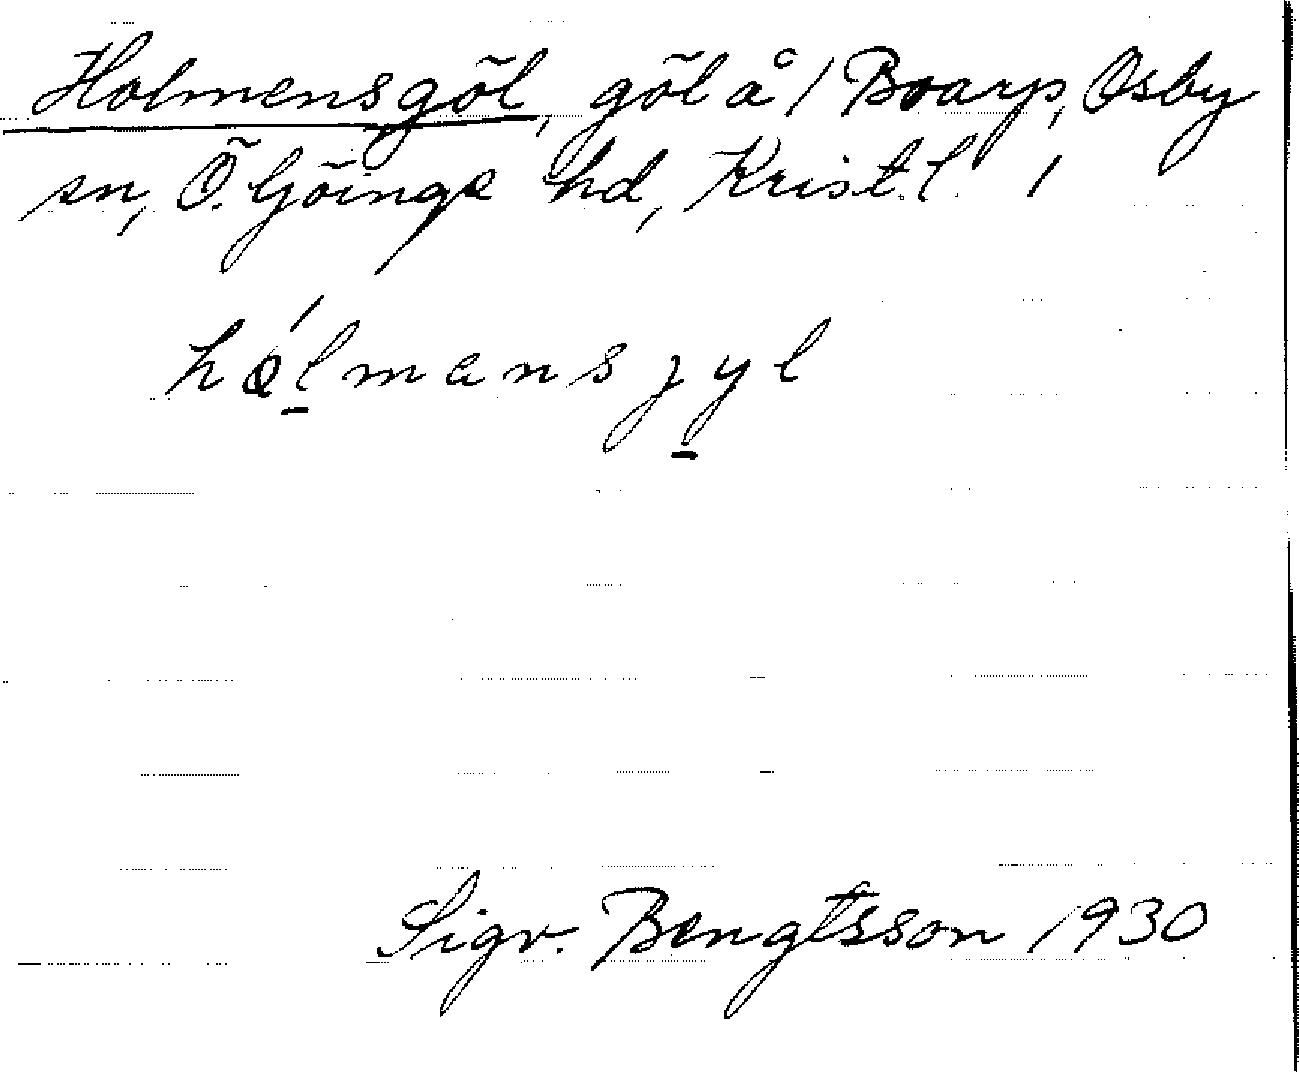 Holmensgöl, göl å 1 Boarp, Osby
sn, Ö. Göinge hd, Kristl. l
hǫ́lmansjyl
Sigv. Bengtsson 1930